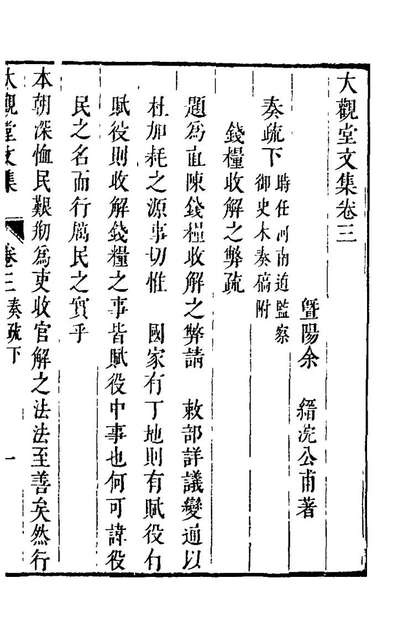 大觀堂文集卷三
暨陽余 縉浣公甫著
奏疏下 時任河南道監察
御史本奏稿附
錢糧收解之弊疏
題為直陳錢糧收解之弊請 敕部詳議變通以
杜加耗之源事切惟 國家有丁地則有賦役有
賦役則收解錢糧之事皆賦役中事也何可諱役
民之名而行厲民之實乎
本朝深恤民艱刱為吏收官解之法法至善矣然行
大觀堂文集 卷三 奏疏下 一